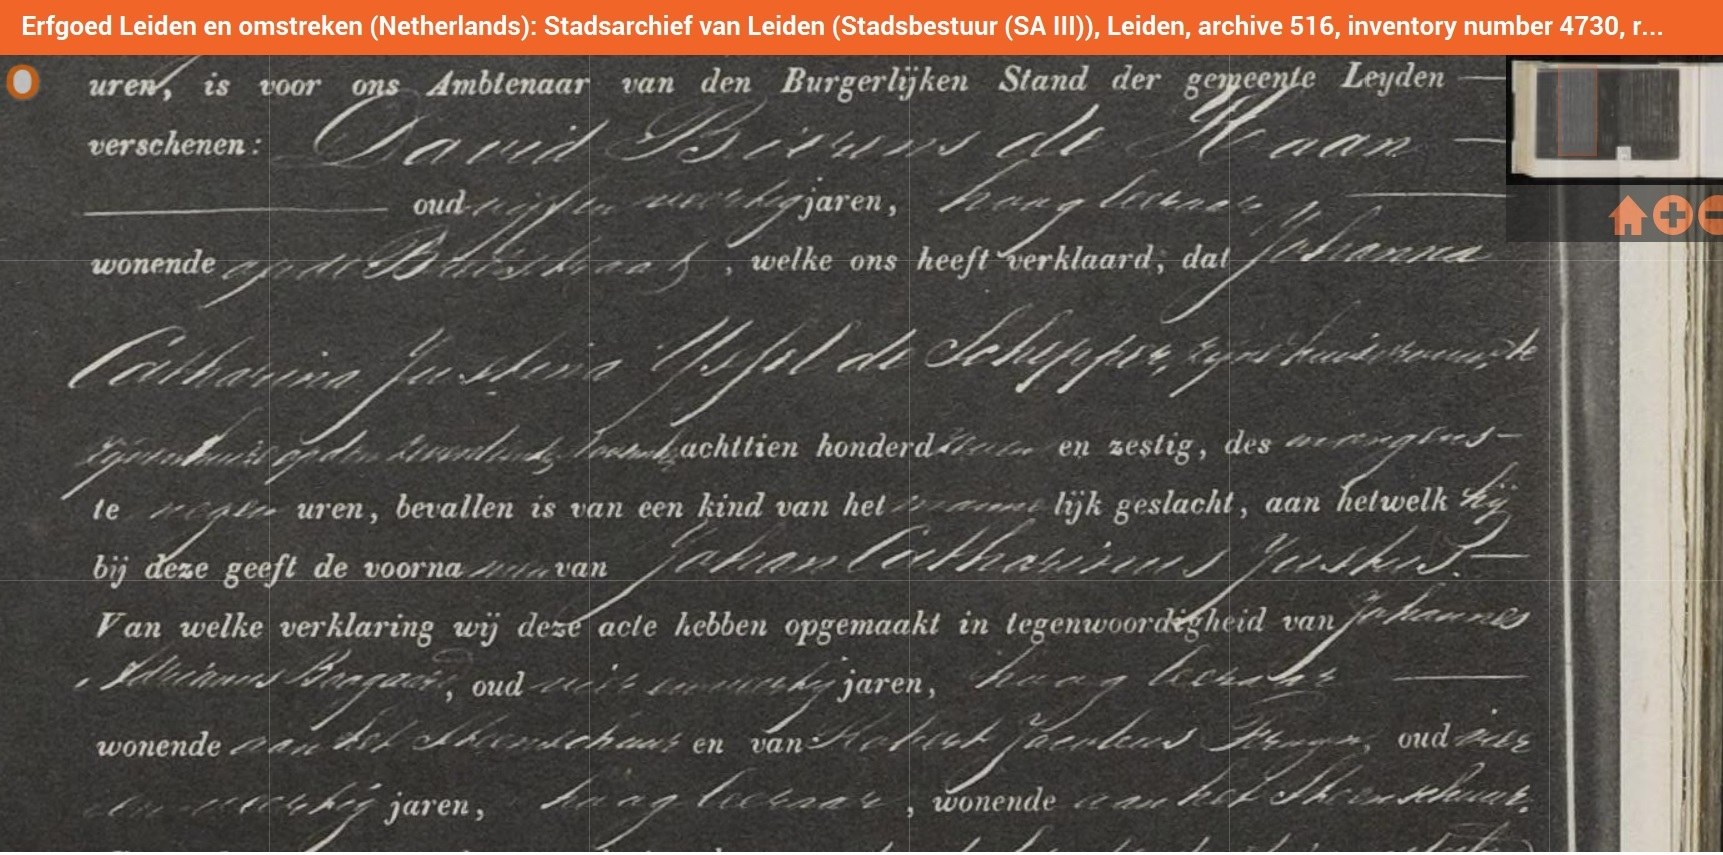 Erfgoed Leiden en omstreken (Netherlands): Stadsarchief van Leiden (Stadsbestuur (SA III)), Leiden, archive 516, inventory number 4730, r...
uren, is voor ons Ambtenaar van den Burgerlijken Stand der gemeente Leyden
verschenen: David Bierens de Haan
oud vijf en veertig jaren, hoogleeraar
wonende op de Breestraat, welke ons heeft verklaard, dat Johanna
Catharina Justina IJssel de Schepper, zijne huisvrouw, te
zijnen huize op den achttien honderd zeven en zestig, des morgens
te negen uren, bevallen is van een kind van het manne lijk geslacht, aan hetwelk hij
bij deze geeft de voorna men van Johan Catharinus Justus.
Van welke verklaring wij deze acte hebben opgemaakt in tegenwoordigheid van Johannes
Adrianus Boogaard, oud vier en veertig jaren, hoogleeraar
wonende aan het Steenschuur en van Robert Jacobus Fruin, oud vier
en veertig jaren, hoogleeraar, wonende aan het Steenschuur.